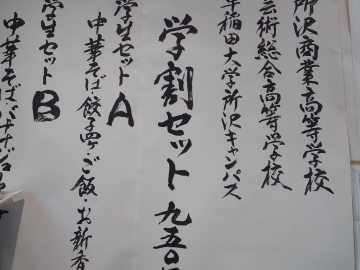 所沢商業高等学校
芸術総合高等学校
早稲田大学所沢キャンパス
学割セット 九五〇
学生セットA
中華そば・餃子四ケ・ご飯・お新香
学生セットB
中華そば・